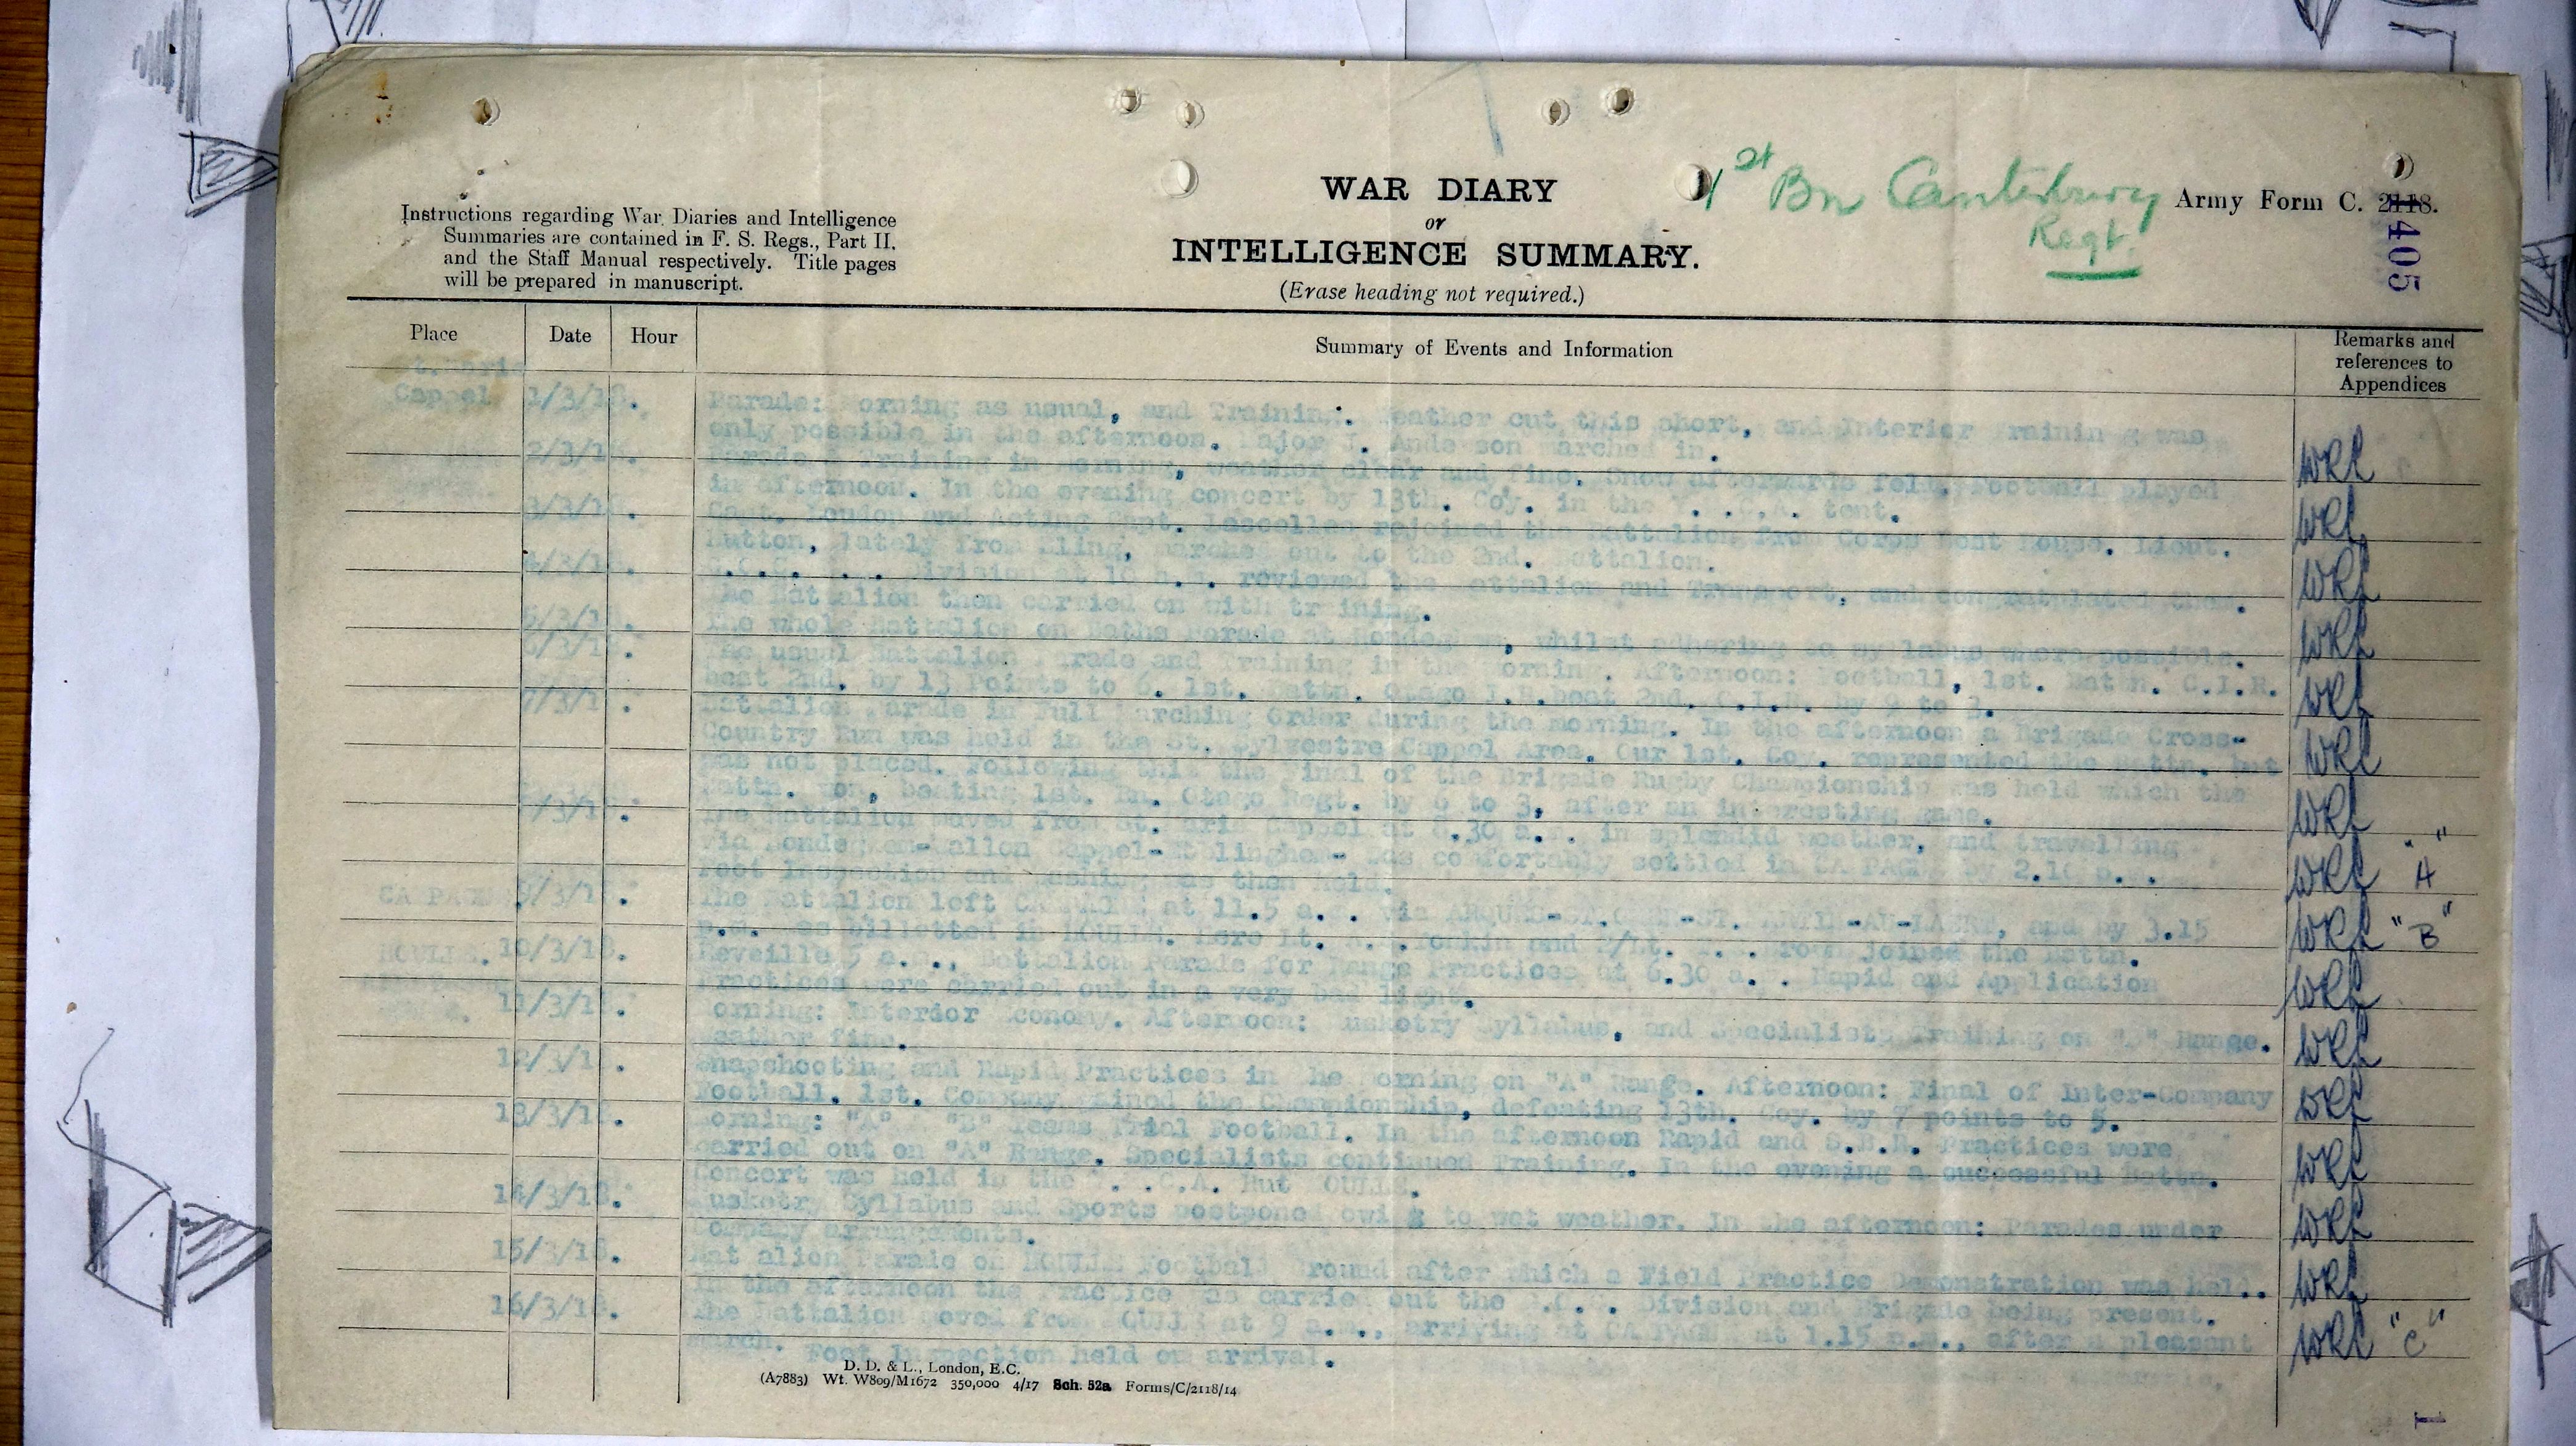 1st Bn Canterbury
Regt.
Army Form C. 2118.
405
WAR DIARY
or
INTELLIGENCE SUMMARY.
(Erase heading not required.)
Instructions regarding War Diaries and Intelligence
Summaries are contained in F. S. Regs., Part II.
and the Staff Manual respectively. Title pages
will be prepared in manuscript.
Place Date Hour Summary of Events and Information Remarks and references to Appendices
St. Marie
Cappel 1/3/18. Parade: Morning as usual, and Training. Weather cut this short, and Interior Training was
only possible in the afternoon. Major I. Anderson marched in. WRL
2/3/18. Parade & Training in Morning, weather clear and fine. Snow afterwards fell, Football played
in afternoon. In the evening concert by 13th. Coy. in the Y.M.C.A. tent. WRL
3/3/18. Capt. Loudon and Acting Capt. Lascelles rejoined the Battalion from Corps Rest House. Lieut.
Hutton, lately from Sling, marched out to the 2nd. Battalion. WRL
4/3/18. Division at 10 a.m. reviewed the Battalion and Transport, and congratulated them.
The Battalion then carried on with training. WRL
5/3/18. The whole Battalion on Baths Parade at Hondeghem, whilst adhering to syllabus where possible. WRL
6/3/18. The usual Battalion Parade and Training in the Morning. Afternoon: Football, 1st. Battn. C.I.R.
beat 2nd. by 13 Points to 6. 1st. Battn. Otago I.R. beat 2nd. O.I.R. by 9 to 3. WRL
7/3/18. Battalion Parade in Full Marching Order during the morning. In the afternoon a Brigade Cross-
Country Run was held in the St. Sylvestre Cappel Area. Our 1st. Coy. represented the Battn. but
was not placed. Following this the Final of the Brigade Rugby Championship was held which the
Battn. won, beating 1st. Bn. Otago Regt. by 6 to 3, after an interesting game. WRL
8/3/18. The Battalion moved from St. Marie Cappel at 8.30 a.m. in splendid weather, and travelling
via Hondeghem-Wallon Cappel-Ebblinghem- was comfortably settled in CAMPAGNE by 2.10 p.m.
Foot Inspection and Washing was then held. WRL "A"
CAMPAGNE 9/3/18. The Battalion left CAMPAGNE at 11.5 a.m. via ARQUES-ST.OMER-ST. MARTIN-AU-LAERT, and by 3.15
p.m. was billetted in HOULLE. Here Lt. and 2/Lt. Brown joined the Battn. WRL "B"
HOULLE. 10/3/18. Reveille 5 a.m., Battalion Parade for Range Practices at 6.30 a.m. Rapid and Application
Practices were carried out in a very bad light. WRL
11/3/18. Morning: Interior Economy. Afternoon: Musketry Syllabus, and Specialists Training on Range.
Weather fine. WRL
12/3/18. Snapshooting and Rapid Practices in the Morning on "A" Range. Afternoon: Final of Inter-Company
Football. 1st. Company gained the Championship, defeating 13th. Coy. by 7 points to 5. WRL
13/3/18. Morning: "A" "B" Teams Trial Football. In the afternoon Rapid and S.B.R. Practices were
carried out on "A" Range. Specialists continued Training. In the evening a successful Battn.
Concert was held in the Y.M.C.A. Hut HOULLE. WRL
14/3/18. Musketry Syllabus and Sports postponed owing to wet weather. In the afternoon: Parades under
Company arrangements. WRL
15/3/18. Battalion Parade on HOULLE Football Ground after which a Field Practice Demonstration was held..
In the afternoon the Practice was carried out the G.O.C. Division and Brigade being present. WRL
16/3/18. The Battalion moved from HOULLE at 9 a.m., arriving at CAMPAGNE at 1.15 p.m., after a pleasant
march. Foot Inspection held on arrival. WRL "C"
D. D. & L., London, E.C.
(A7883) Wt. W809/M1672 350,000 4/17 Sch. 52a Forms/C/2118/14
1